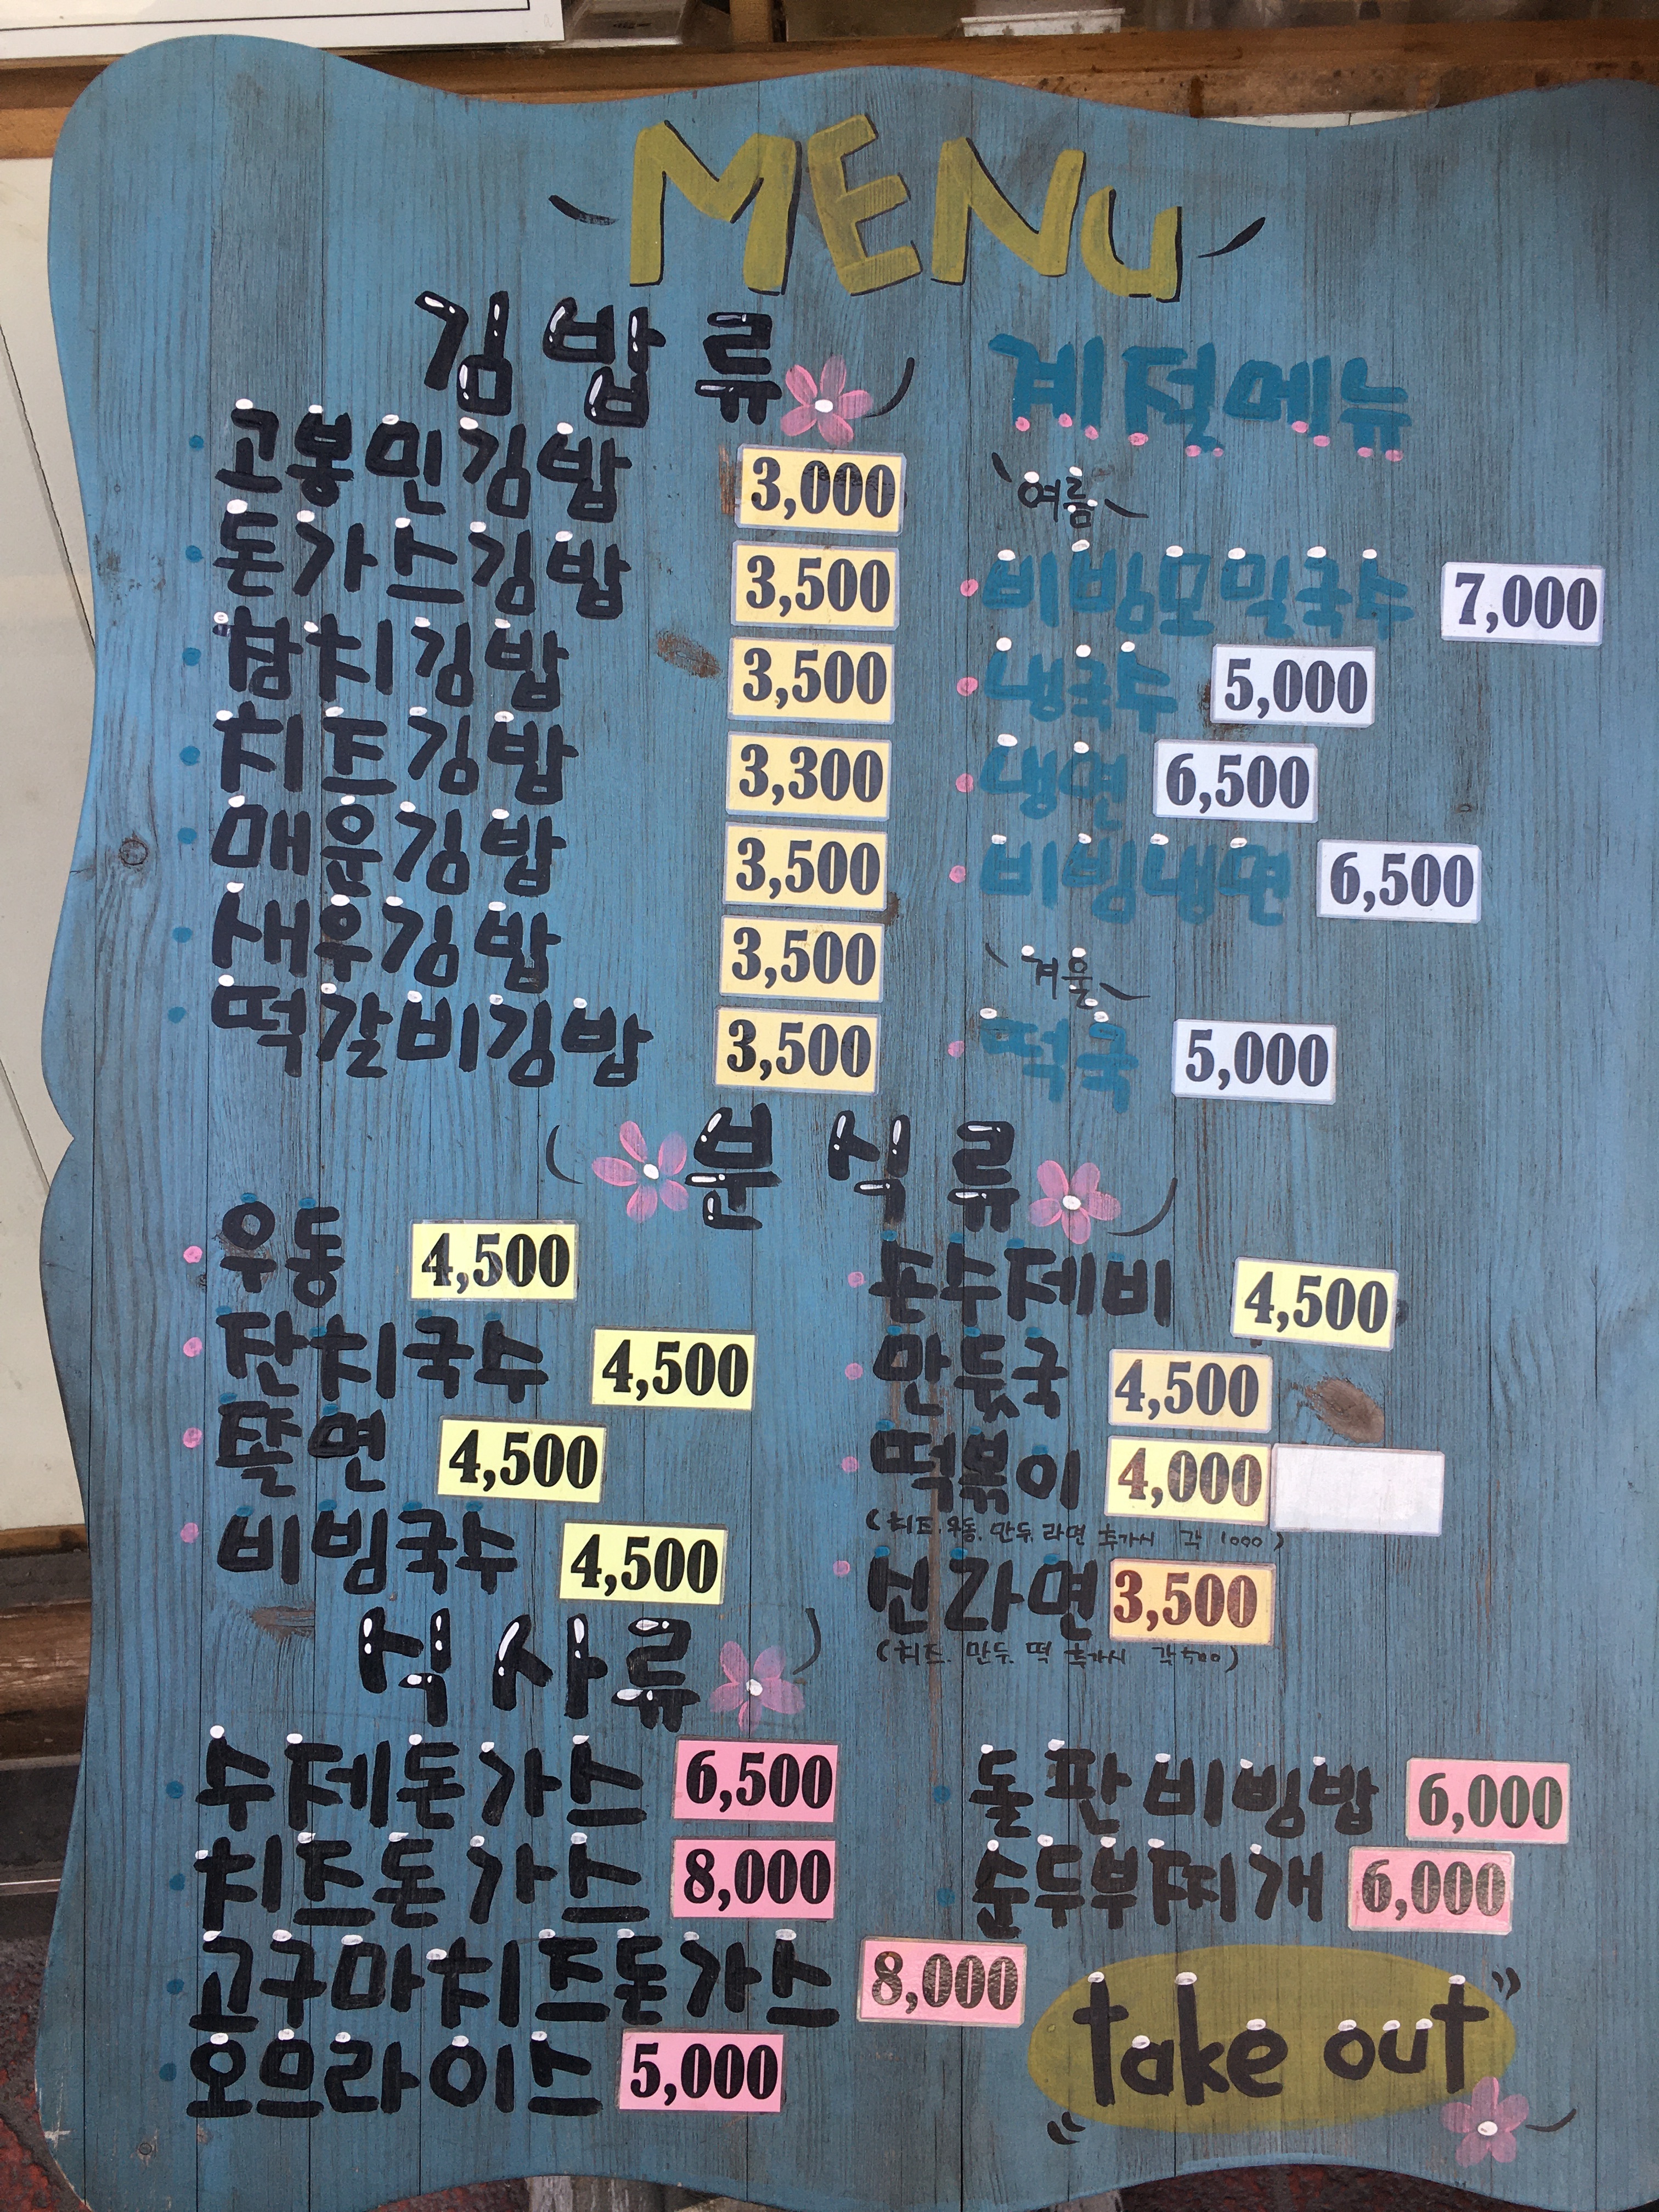 MENU
김밥류
고봉민김밥 3,000
돈가스김밥 3,500
참치김밥 3,500
치즈김밥 3,300
매운김밥 3,500
새우김밥 3,500
떡갈비김밥 3,500
계절메뉴
여름
비빔모밀국수 7,000
냉국수 5,000
냉면 6,500
비빔냉면 6,500
겨울
떡국 5,000
분식류
우동 4,500
잔치국수 4,500
쫄면 4,500
비빔국수 4,500
손수제비 4,500
만둣국 4,500
떡볶이 4,000
(치즈.우동.만두.라면 추가시 각 1000)
신라면 3,500
(치즈.만두.떡 추가시 각500)
식사류
수제돈가스 6,500
치즈돈가스 8,000
고구마치즈돈가스 8,000
오므라이스 5,000
돌판비빔밥 6,000
순두부찌개 6,000
take out